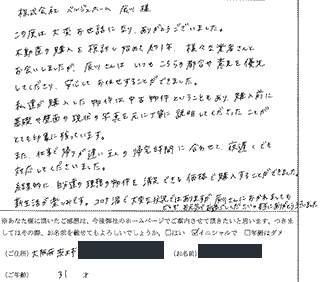 株式会社 ベルジュホーム 辰川 様
この度は大変お世話になり、ありがとうございました。
不動産の購入を検討し始めて約1年、様々な業者さんと
お会いしましたが、辰川さんは いつもこちらの都合や考えを優先
してくださり、安心してお任せすることができました。
私達が購入した物件は中古物件ということもあり、購入前に
基礎や壁面の現状の写真を元に丁寧に説明してくださったことが
とても印象に残っています。
また、仕事で帰りが遅い主人の帰宅時間に合わせて、夜遅くでも
対応してくださいました。
結果的に、私達の理想の物件を満足できる価格で購入することができました。
新生活が楽しみです。コロナ渦で大変な状況ではありますが、辰川さんにおかれましても
※あなた様に頂いたご感想は、今後弊社のホームページでご案内させて頂きたいと思います。つきまし
てはその際、お名前を載せてもよろしいでしょうか。 □はい ☑イニシャルで □名前はダメ
(ご住所) 大阪府茨木市 (お名前)
(ご年齢) 31 才